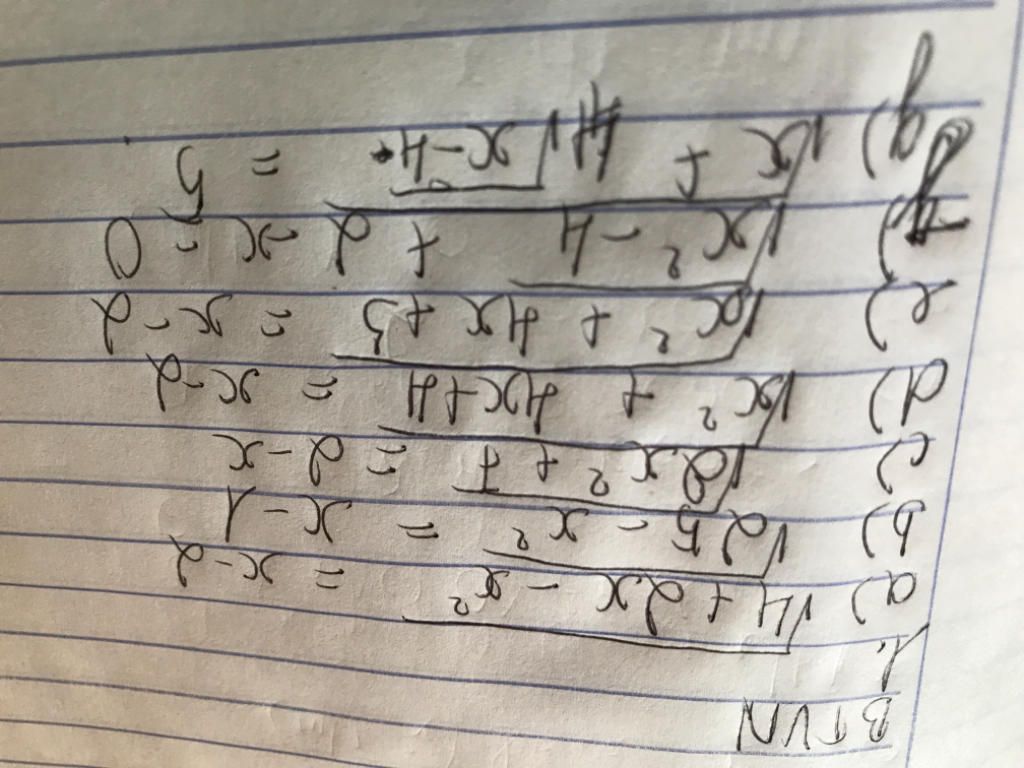 BTVN
1.
a) √4+2x-x² = x-2
b) √25-x² = x-1
c) √2x²+7 = 2-x
d) √x²+4x+4 = x-2
e) √x²+4x+3 = x-2
f) √x²-4 + 2-x = 0
g) √x+4√x-4 = 5